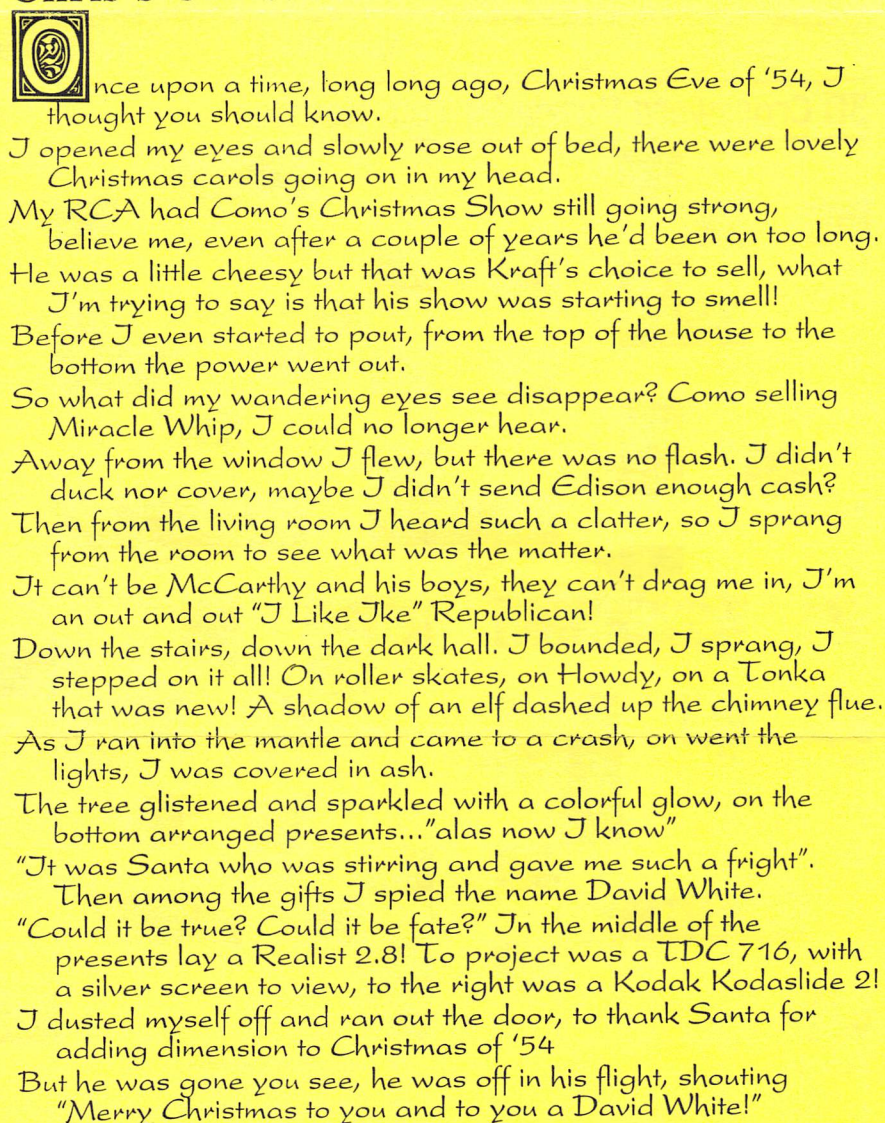 Once upon a time, long long ago, Christmas Eve of '54, I
thought you should know.
I opened my eyes and slowly rose out of bed, there were lovely
Christmas carols going on in my head.
My RCA had Como's Christmas Show still going strong,
believe me, even after a couple of years he'd been on too long.
He was a little cheesy but that was Kraft's choice to sell, what
I'm trying to say is that his show was starting to smell!
Before I even started to pout, from the top of the house to the
bottom the power went out.
So what did my wandering eyes see disappear? Como selling
Miracle Whip, I could no longer hear.
Away from the window I flew, but there was no flash. I didn't
duck nor cover, maybe I didn't send Edison enough cash?
Then from the living room I heard such a clatter, so I sprang
from the room to see what was the matter.
It can't be McCarthy and his boys, they can't drag me in, I'm
an out and out "I Like Ike" Republican!
Down the stairs, down the dark hall. I bounded, I sprang, I
stepped on it all! On roller skates, on Howdy, on a Tonka
that was new! A shadow of an elf dashed up the chimney flue.
As I ran into the mantle and came to a crash, on went the
lights, I was covered in ash.
The tree glistened and sparkled with a colorful glow, on the
bottom arranged presents..."alas now I know"
"It was Santa who was stirring and gave me such a fright".
Then among the gifts I spied the name David White.
"Could it be true? Could it be fate?" In the middle of the
presents lay a Realist 2.8! To project was a TDC 716, with
a silver screen to view, to the right was a Kodak Kodaslide 2!
I dusted myself off and ran out the door, to thank Santa for
adding dimension to Christmas of '54
But he was gone you see, he was off in his flight, shouting
"Merry Christmas to you and to you a David White!"